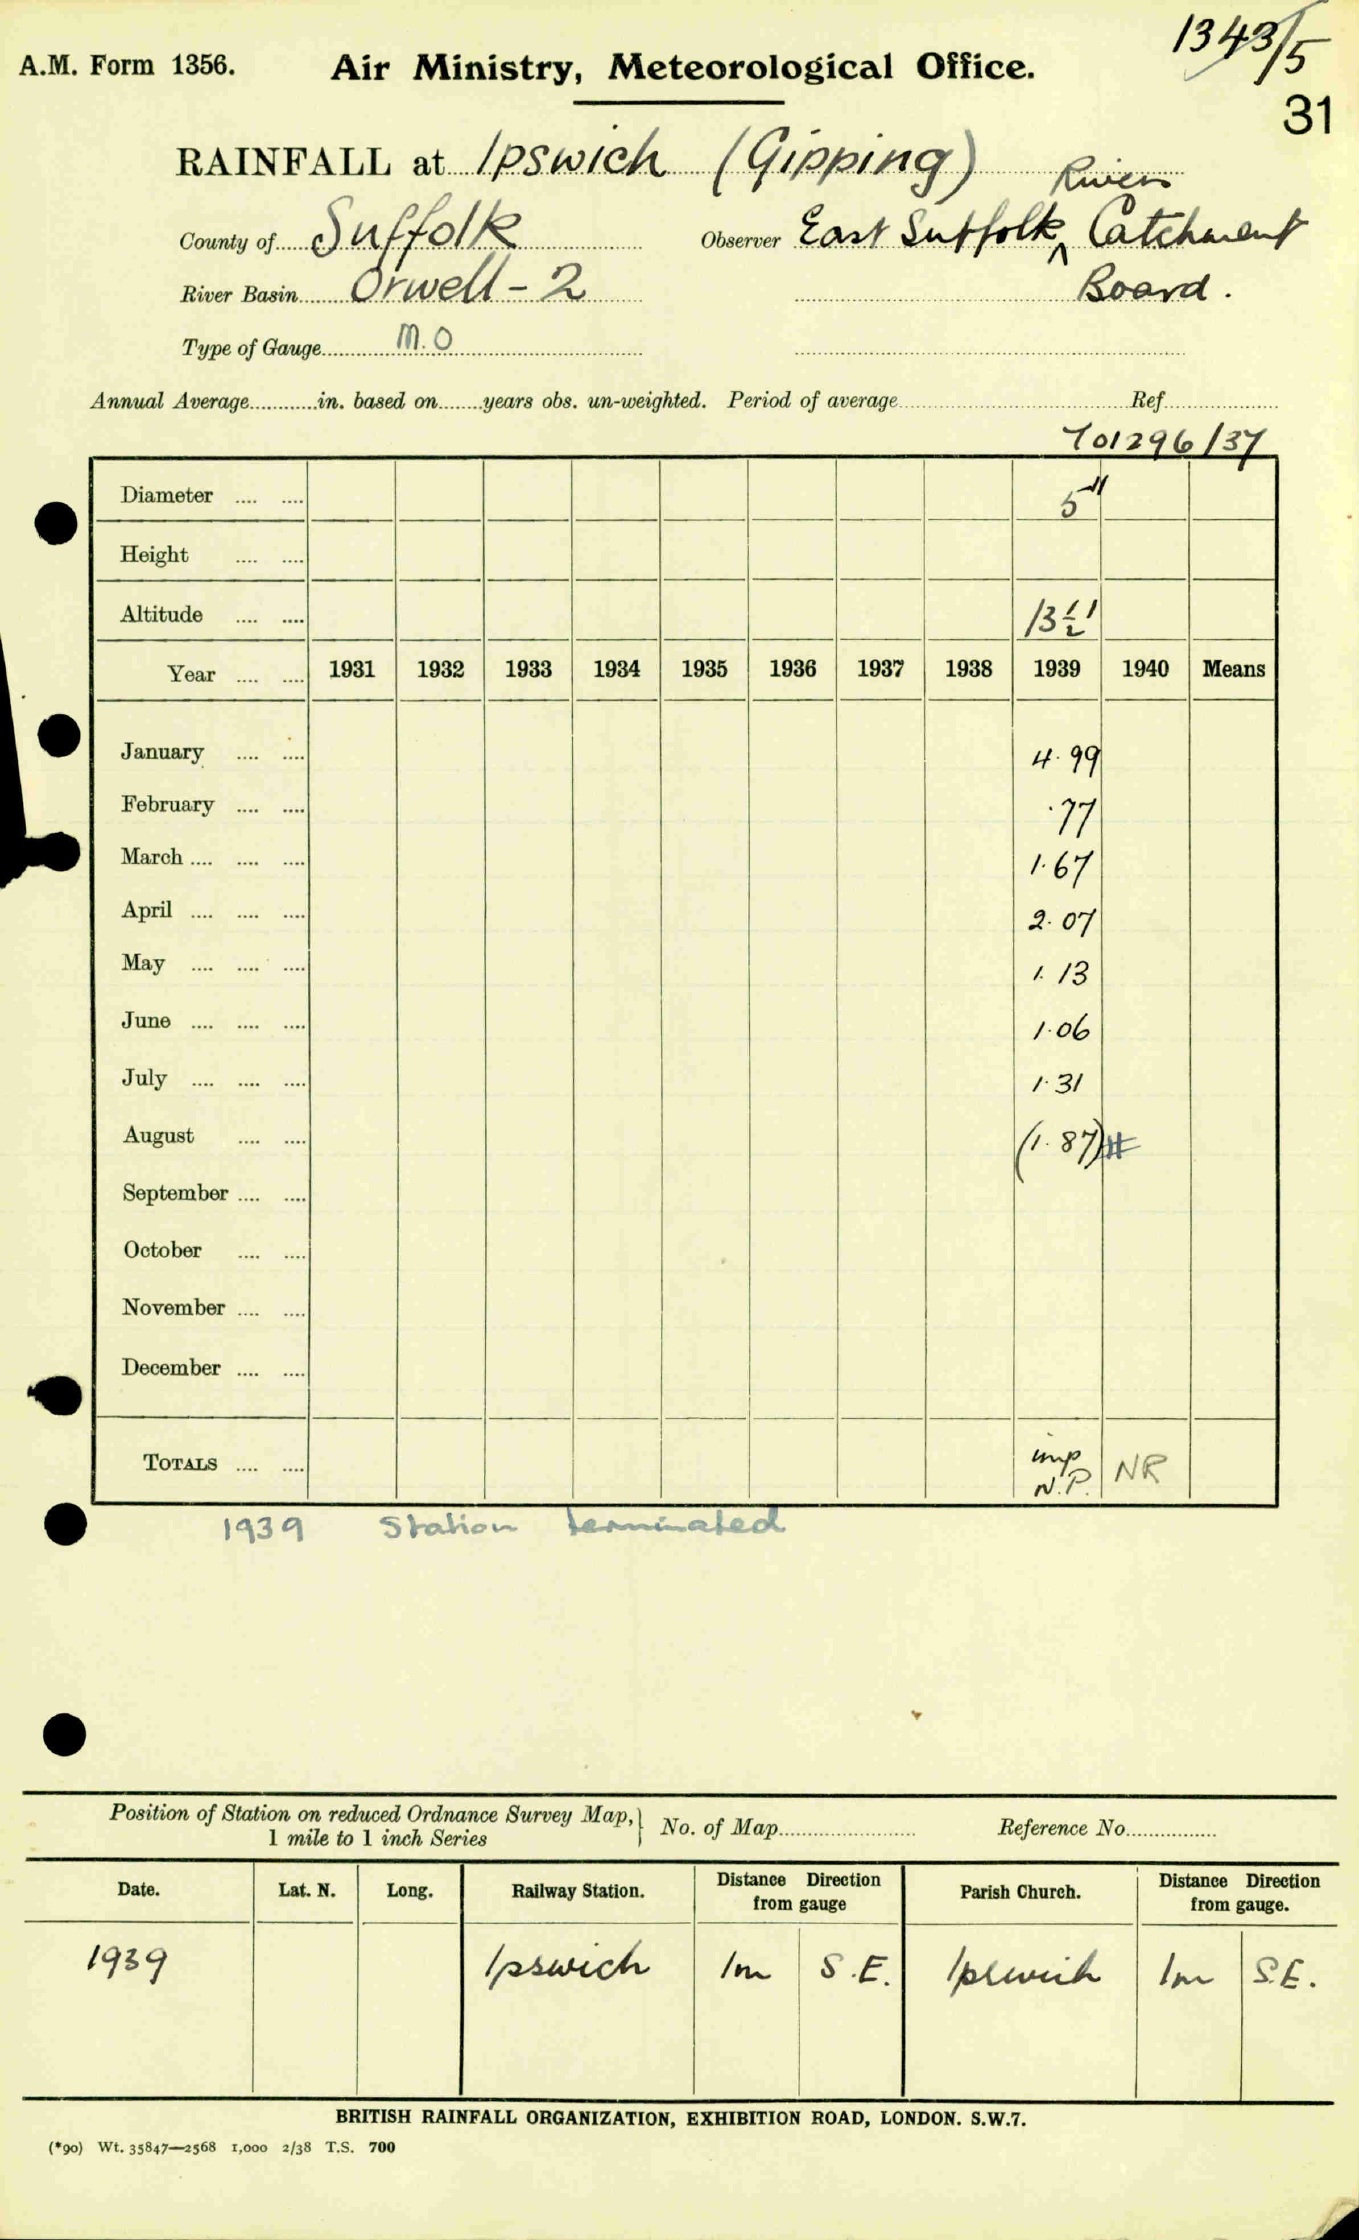 1343/5
A.M. Form 1356. Air Ministry, Meteorological Office.
31
RAINFALL at Ipswich (Gipping)
Rivers
County of Suffolk Observer East Suffolk ^ Catchment
River Basin Orwell - 2 Board.
Type of Gauge M.O
Annual Average in. based on years obs. un-weighted. Period of average Ref.
701296/37
Diameter 5"
Height
Altitude 13½'
Year 1931 1932 1933 1934 1935 1936 1937 1938 1939 1940 Means
January 4.99
February .77
March 1.67
April 2.07
May 1.13
June 1.06
July 1.31
August (1.87)#
September
October
November
December
TOTALS imp N.P. NR
1939 Station terminated
Position of Station on reduced Ordnance Survey Map, } No. of Map Reference No.
1 mile to 1 inch Series
Date. Lat. N. Long. Railway Station. Distance Direction from gauge Parish Church. Distance Direction from gauge.
1939 Ipswich 1m S.E. Ipswich 1m S.E.
BRITISH RAINFALL ORGANIZATION, EXHIBITION ROAD, LONDON. S.W.7.
(*90) Wt. 35847—2568 1,000 2/38 T.S. 700